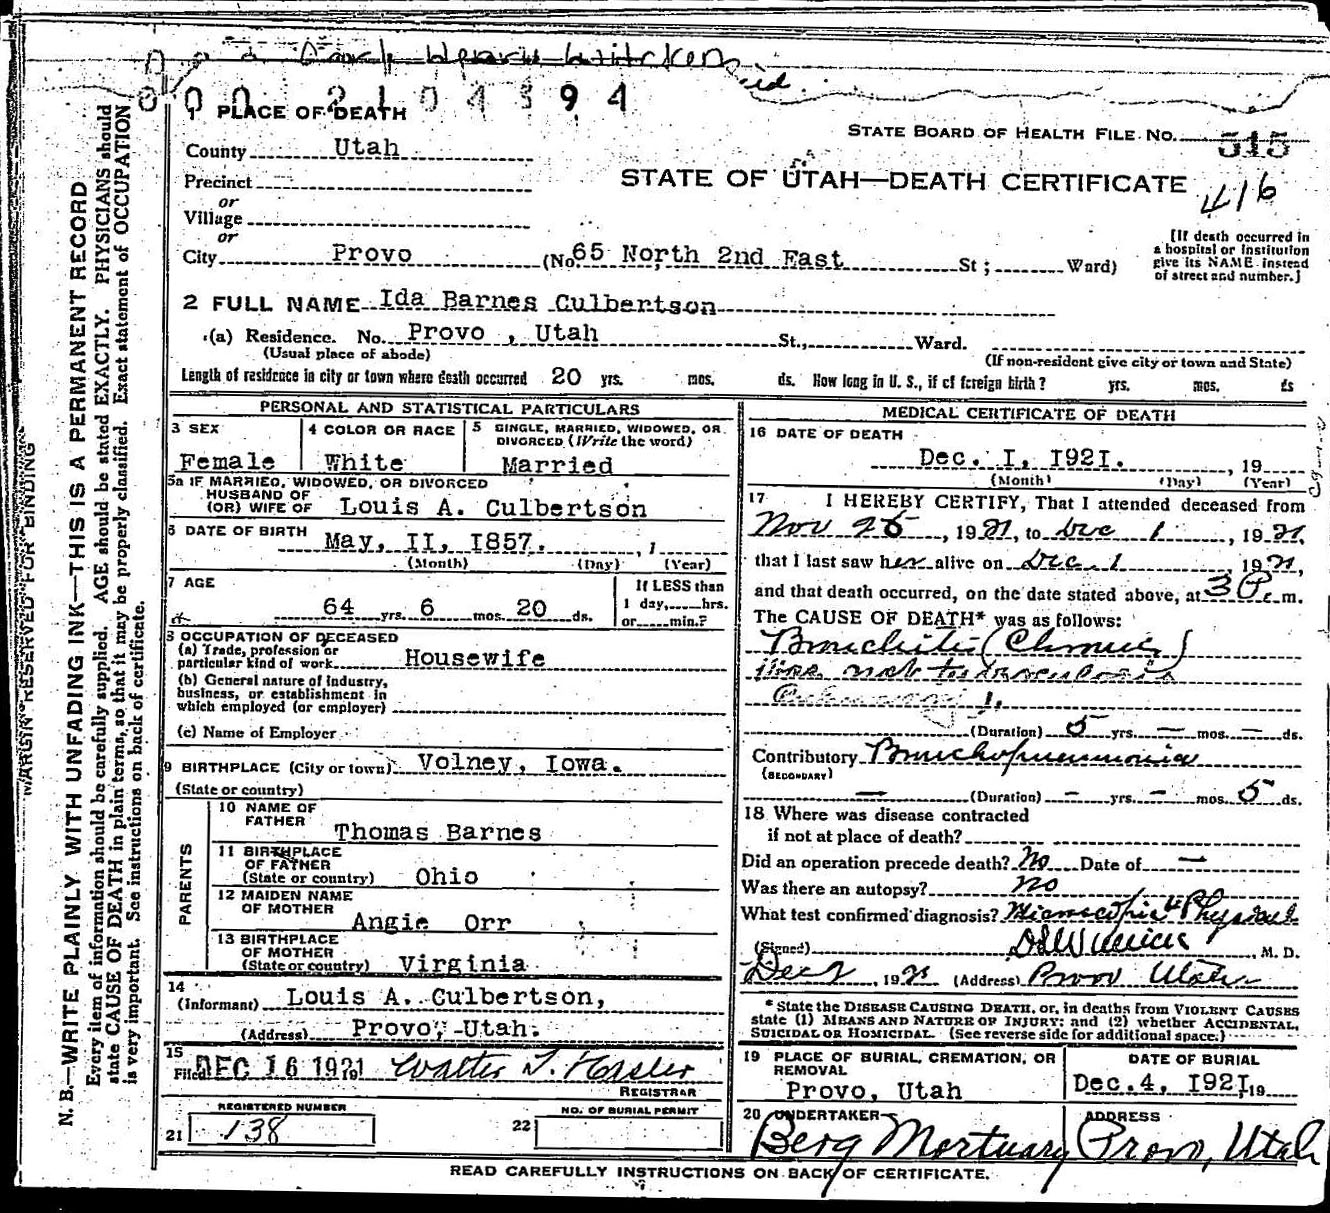 0 0 0 2 1 0 4 3 9 4
1 PLACE OF DEATH
STATE BOARD OF HEALTH FILE NO. 515
County Utah
STATE OF UTAH—DEATH CERTIFICATE
416
Precinct
or
Village
or
City Provo (No 65 North 2nd East St ; Ward)
[If death occurred in
a hospital or institution
give its NAME instead
of street and number.]
2 FULL NAME Ida Barnes Culbertson
(a) Residence. No. Provo , Utah St., Ward.
(Usual place of abode) (If non-resident give city or town and State)
Length of residence in city or town where death occurred 20 yrs. mos. ds. How long in U. S., if of foreign birth? yrs. mos. ds
PERSONAL AND STATISTICAL PARTICULARS
3 SEX
Female
4 COLOR OR RACE
White
5 SINGLE, MARRIED, WIDOWED, OR
DIVORCED (Write the word)
Married
5a IF MARRIED, WIDOWED, OR DIVORCED
HUSBAND OF
(OR) WIFE OF Louis A. Culbertson
6 DATE OF BIRTH May, II, I857. , 1
(Month) (Day) (Year)
7 AGE
64 yrs. 6 mos. 20 ds.
If LESS than
1 day, hrs.
or min.?
8 OCCUPATION OF DECEASED
(a) Trade, profession or
particular kind of work Housewife
(b) General nature of industry,
business, or establishment in
which employed (or employer)
(c) Name of Employer
9 BIRTHPLACE (City or town) Volney, Iowa.
(State or country)
PARENTS
10 NAME OF
FATHER Thomas Barnes
11 BIRTHPLACE
OF FATHER
(State or country) Ohio
12 MAIDEN NAME
OF MOTHER Angie Orr
13 BIRTHPLACE
OF MOTHER
(State or country) Virginia
14
(Informant) Louis A. Culbertson,
(Address) Provo, Utah.
15
Filed DEC 16 1921 Walter T. Hasler
REGISTRAR
REGISTERED NUMBER
21 138
NO. OF BURIAL PERMIT
22
MEDICAL CERTIFICATE OF DEATH
16 DATE OF DEATH
Dec. I, I92I. , 19
(Month) (Day) (Year)
17 I HEREBY CERTIFY, That I attended deceased from
Nov 25, 1921, to Dec 1, 1921,
that I last saw her alive on Dec. 1, 1921,
and that death occurred, on the date stated above, at 3 P. m.
The CAUSE OF DEATH* was as follows:
Bronchitis (Chronic)
not tuberculosis
(Duration) 5 yrs. — mos. — ds.
Contributory Bronchopneumonia
(SECONDARY)
— (Duration) – yrs. – mos. 5 ds.
18 Where was disease contracted
if not at place of death?
Did an operation precede death? No Date of —
Was there an autopsy? no
What test confirmed diagnosis? Microscopic & Physical
(Signed) M. D.
Dec 2, 1921 (Address) Provo Utah
* State the DISEASE CAUSING DEATH, or, in deaths from VIOLENT CAUSES
state (1) MEANS AND NATURE OF INJURY; and (2) whether ACCIDENTAL,
SUICIDAL OR HOMICIDAL. (See reverse side for additional space.)
19 PLACE OF BURIAL, CREMATION, OR
REMOVAL
Provo, Utah
DATE OF BURIAL
Dec. 4, I92I, 19
20 UNDERTAKER
Berg Mortuary
ADDRESS
Provo, Utah
READ CAREFULLY INSTRUCTIONS ON BACK OF CERTIFICATE.
MARGIN RESERVED FOR BINDING
N. B.—WRITE PLAINLY WITH UNFADING INK—THIS IS A PERMANENT RECORD
Every item of information should be carefully supplied. AGE should be stated EXACTLY. PHYSICIANS should
state CAUSE OF DEATH in plain terms, so that it may be properly classified. Exact statement of OCCUPATION
is very important. See instructions on back of certificate.